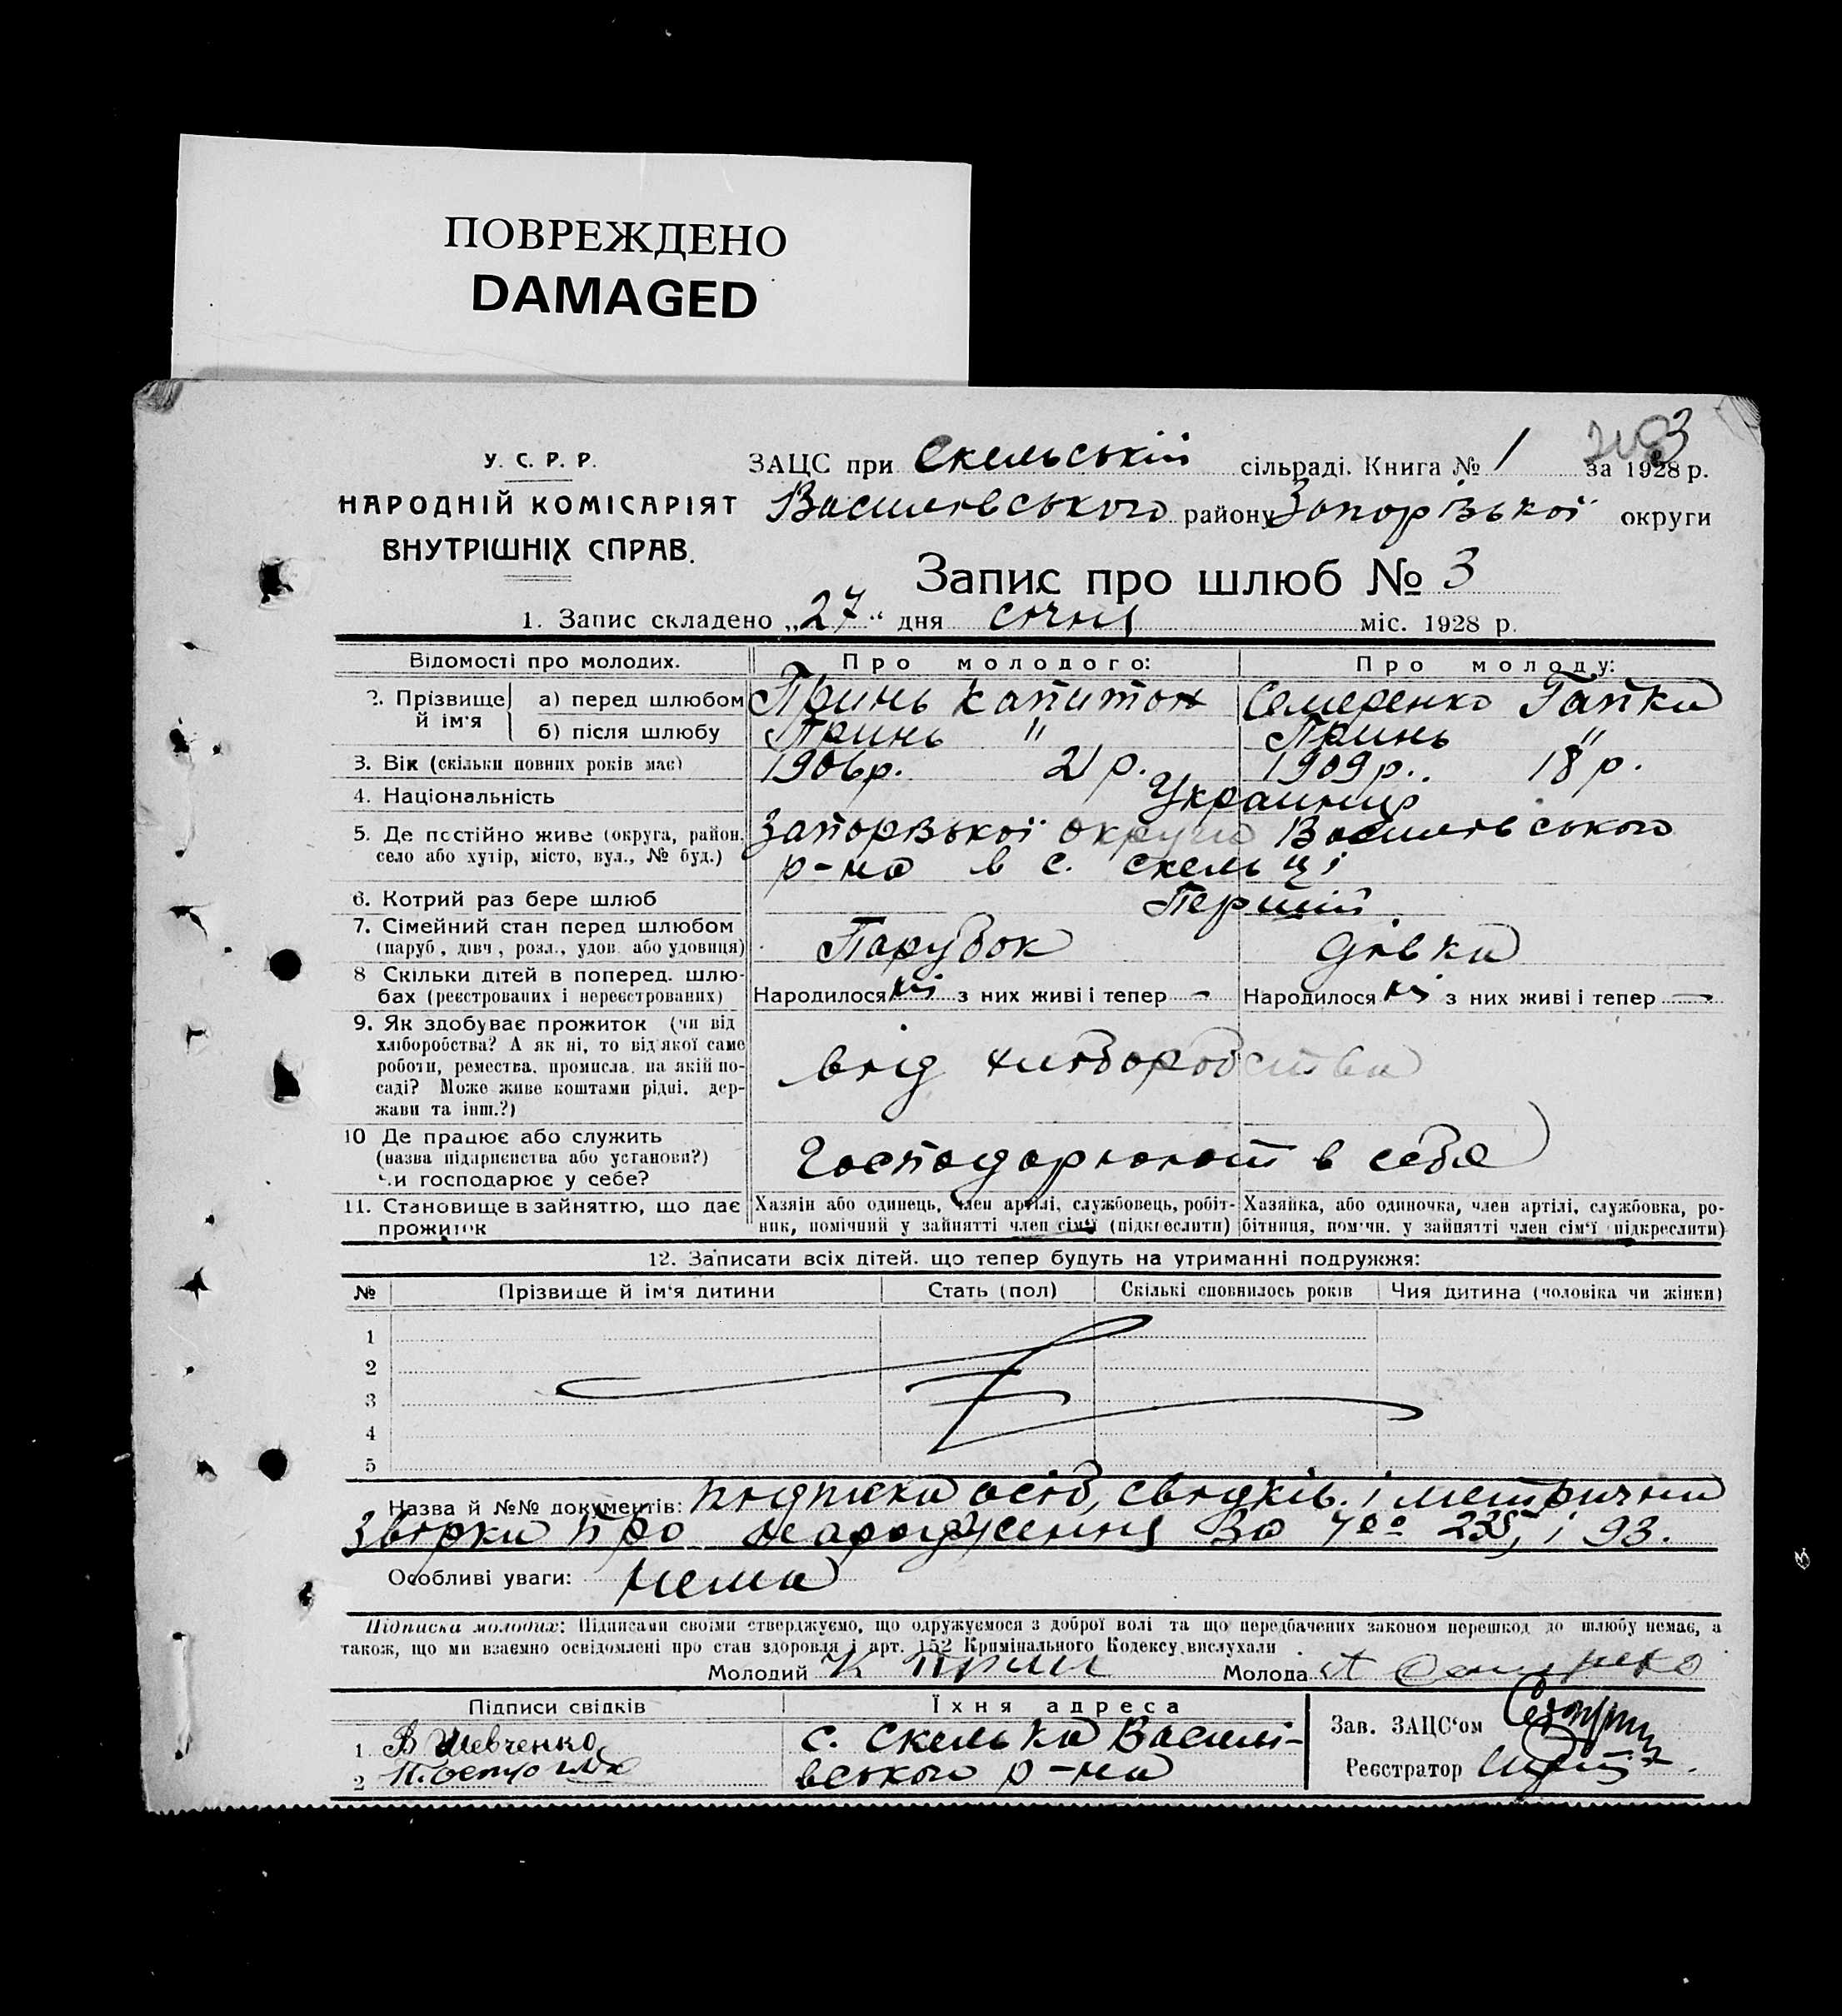 ПОВРЕЖДЕНО
DAMAGED
3
У. С. Р. Р.
НАРОДНІЙ КОМІСАРІЯТ
ВНУТРІШНІХ СПРАВ.
ЗАЦС при Скельській сільраді. Книга № 1 за 1928 р.
Василівського району Запорізької округи
Запис про шлюб № 3
1. Запис складено „27“ дня січня міс. 1928 р.
Відомості про молодих. Про молодого: Про молоду:
2. Прізвище й ім'я а) перед шлюбом Принь Капитон Семеренко Гапка
б) після шлюбу Принь " Принь "
3. Вік (скільки повних років має) 1906 р. 21 р. 1909 р.. 18 р.
4. Національність Українці
5. Де постійно живе (округа, район, Запорізької округи Василівського
село або хутір, місто, вул., № буд.) р-на в с. Скельці
6. Котрий раз бере шлюб Перший
7. Сімейний стан перед шлюбом Парубок Дівка
(паруб, дівч, розл., удов. або удовиця)
8 Скільки дітей в поперед. шлю-
бах (реєстрованих і нереєстрованих) Народилося ні з них живі і тепер — Народилося ні з них живі і тепер —
9. Як здобуває прожиток (чи від
хліборобства? А як ні, то від якої саме
роботи, ремества, промисла, на якій по-
саді? Може живе коштами рідні, дер-
жави та інш.?)
від хліборобства
10 Де працює або служить
(назва підприємства або установи?)
чи господарює у себе?
Господарюють в себе
11. Становище в зайняттю, що дає
прожиток
Хазяін або одинець, член артілі, службовець, робіт-
ник, помічний у зайнятті член сім'ї (підкреслити)
Хазяйка, або одиночка, член артілі, службовка, ро-
бітниця, помічн. у зайнятті член сім'ї (підкреслити)
12. Записати всіх дітей. що тепер будуть на утриманні подружжя:
№ Прізвище й ім'я дитини Стать (пол) Скількі сповнилось років Чия дитина (чоловіка чи жінки)
1
2
3
4
5
Назва й №№ документів: підписка осіб, свідків. і метрични
звірки про народження за 93.
Особливі уваги: нема
Підписка молодих: Підписами своїми стверджуємо, що одружуємося з доброї волі та що передбачених законом перешкод до шлюбу немає, а
також, що ми взаємно освідомлені про стан здоровля і арт. 152 Кримінального Кодексу вислухали
Молодий К Принь Молода
Підписи свідків Їхня адреса
1 В Шевченко с. Скелька Василі-
2 вського р-на
Зав. ЗАЦС'ом
Реєстратор